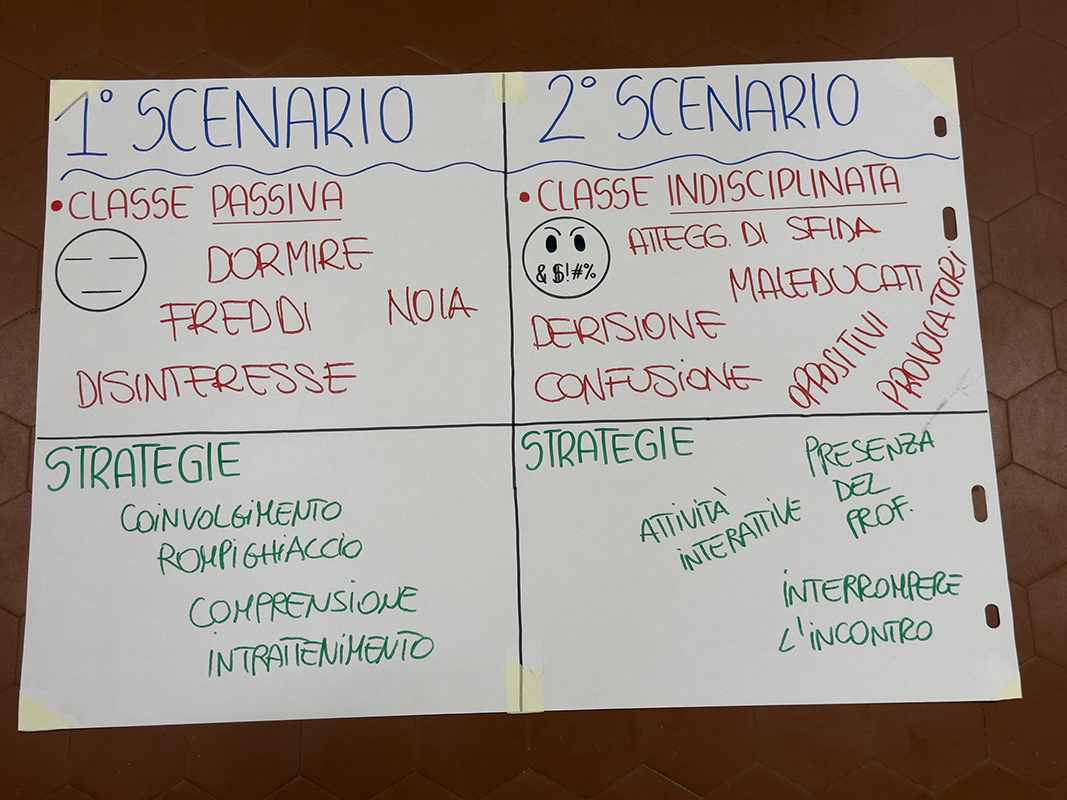 1° SCENARIO
• CLASSE PASSIVA
DORMIRE
FREDDI
NOIA
DISINTERESSE
STRATEGIE
COINVOLGIMENTO
ROMPIGHIACCIO
COMPRENSIONE
INTRATTENIMENTO
2° SCENARIO
• CLASSE INDISCIPLINATA
ATTEGG. DI SFIDA
& $!#%
MALEDUCATI
DERISIONE
CONFUSIONE
OPPOSITIVI
PROVOCATORI
STRATEGIE
PRESENZA
DEL
PROF.
ATTIVITÀ
INTERATTIVE
INTERROMPERE
L'INCONTRO